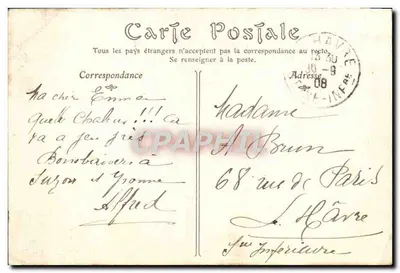 Carte Postale
Tous les pays étrangers n'acceptent pas la correspondance au recto
Se renseigner à la poste.
Correspondance
Adresse
HAVRE
15 30
16-9
08
Ma chère Emma
Quelle Chaleur !!! Ca
va a peu près
Bons baisers a
Suzon et Yvonne
Alfred
Madame
A Brun
68 rue de Paris
Le Hâvre
Sne Inférieure
CPAPHIL